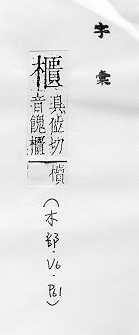 字彙
櫃 具位切
音餽櫃
櫝
(木部·V6·P61)